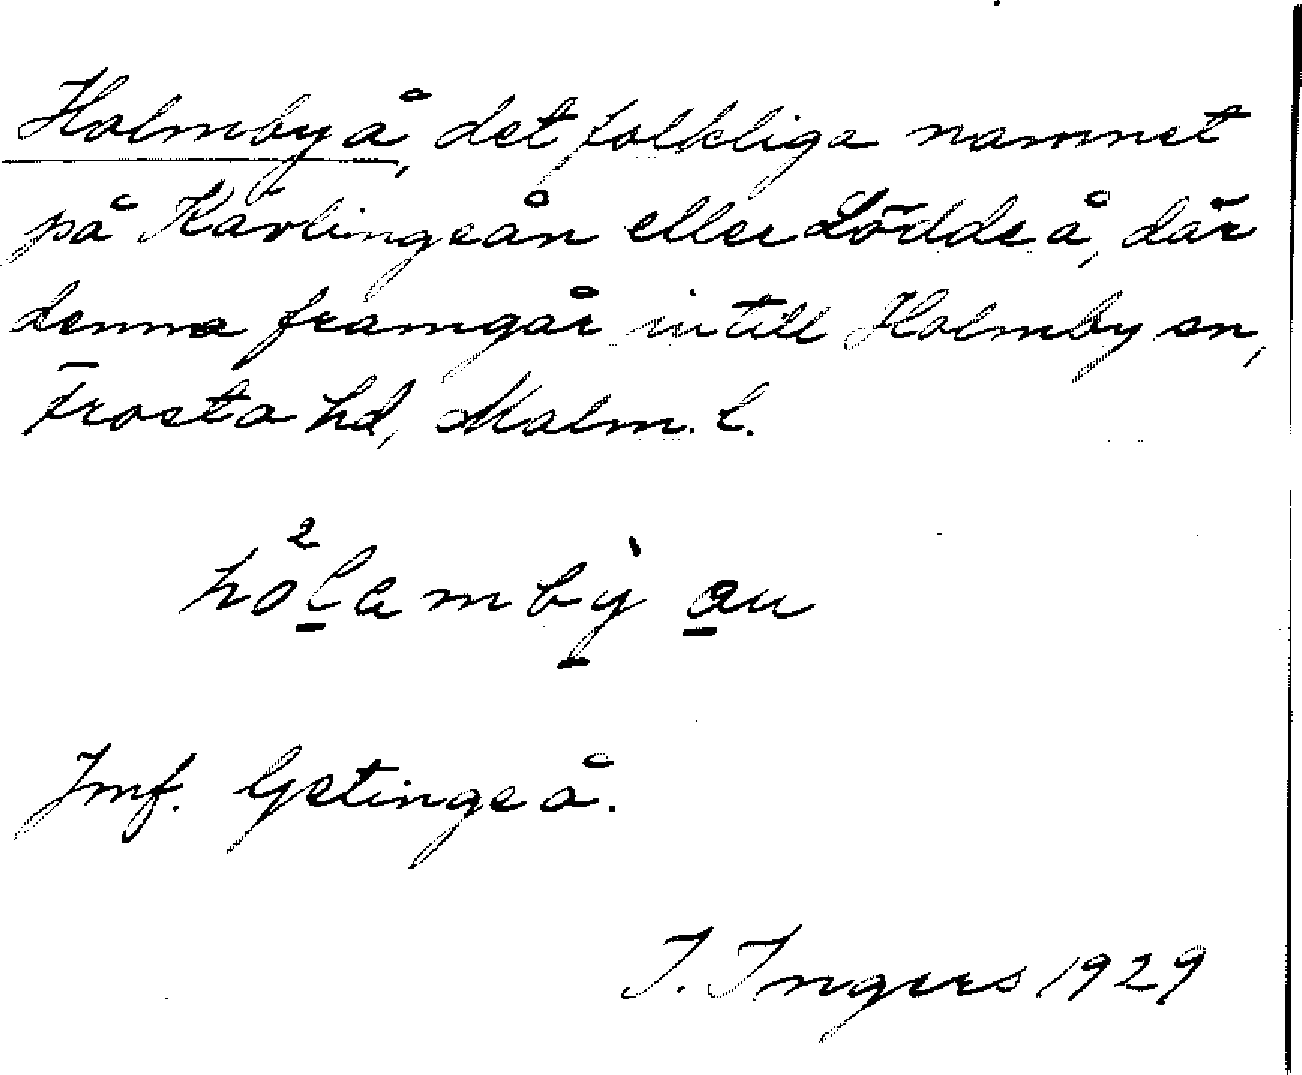 Holmby å, det folkliga namnet
på Kävlingeån eller Lödde å, där
denna framgår intill Holmby sn,
Frosta hd, Malm. l.
hò²lambỳ au
Jmf. Getinge å.
I. Ingers 1929